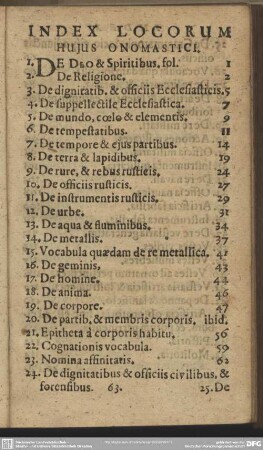 INDEX LOCORUM
HUJUS ONOMASTICI.
1. DE DEO & Spiritibus. fol. 1
2. De Religione. 2
3. De dignitatib. & officiis Ecclesiasticis. 5
4. De suppellectile Ecclesiastica. 7
5. De mundo, cœlo & elementis. 9
6. De tempestatibus. 11
7. De tempore & ejus partibus. 14
8. De terra & lapidibus. 19
9. De rure, & rebus rusticis. 24
10. De officiis rusticis. 27
11. De instrumentis rusticis. 29
12. De urbe. 31
13. De aqua & fluminibus. 34
14. De metallis. 37
15. Vocabula quædam de re metallica. 41
16. De geminis. 43
17. De homine. 44
18. De anima. 46
19. De corpore. 47
20. De partib. & membris corporis. ibid.
21. Epitheta à corporis habitu. 56
22. Cognationis vocabula. 59
23. Nomina affinitatis. 62
24. De dignitatibus & officiis civilibus, &
forensibus. 63. 25. De